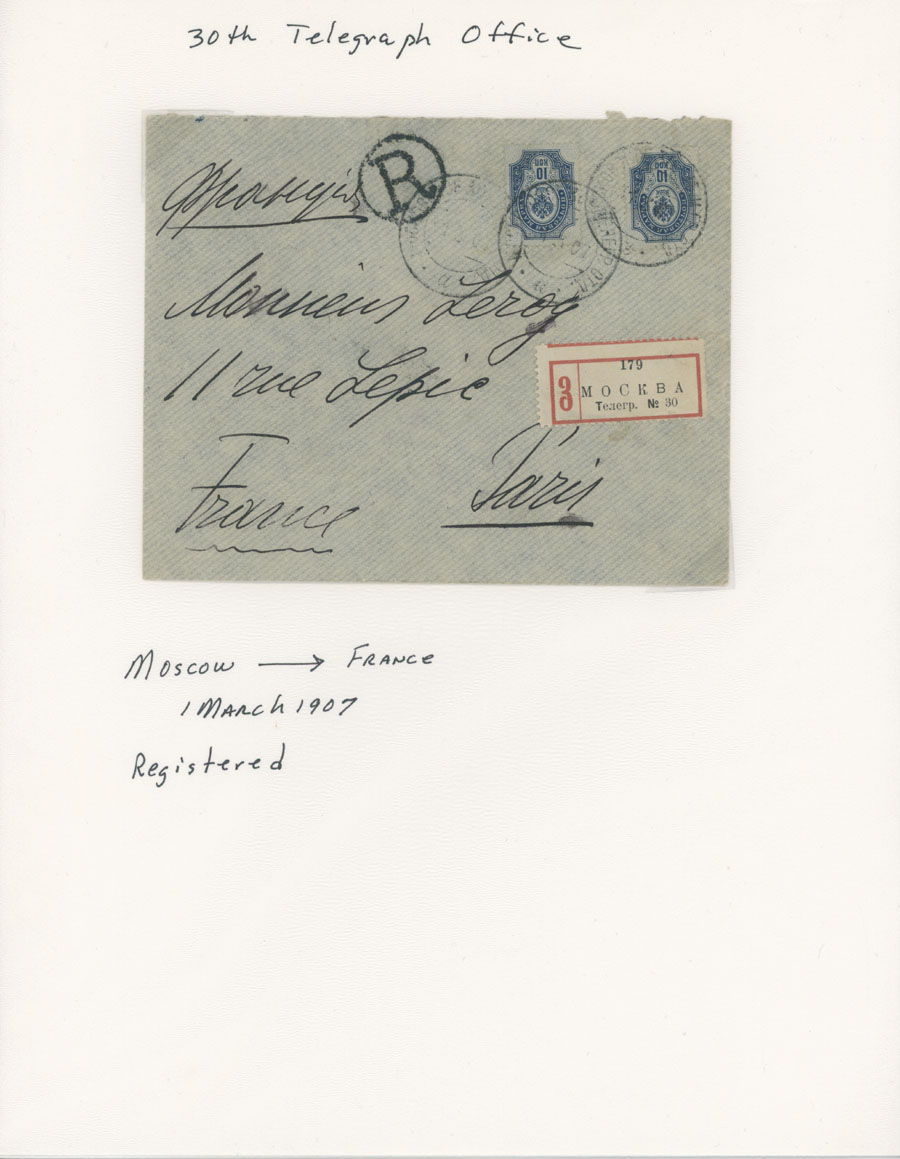 30th Telegraph Office
Франція
R
10
КОП
10
КОП
Monsieur Leroy
11 rue Lepic
179
З
МОСКВА
Телегр. № 30
France
Paris
Moscow → France
1 March 1907
Registered